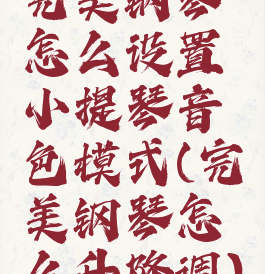 完美钢琴
怎么设置
小提琴音
色模式(完
美钢琴怎
么升降调)